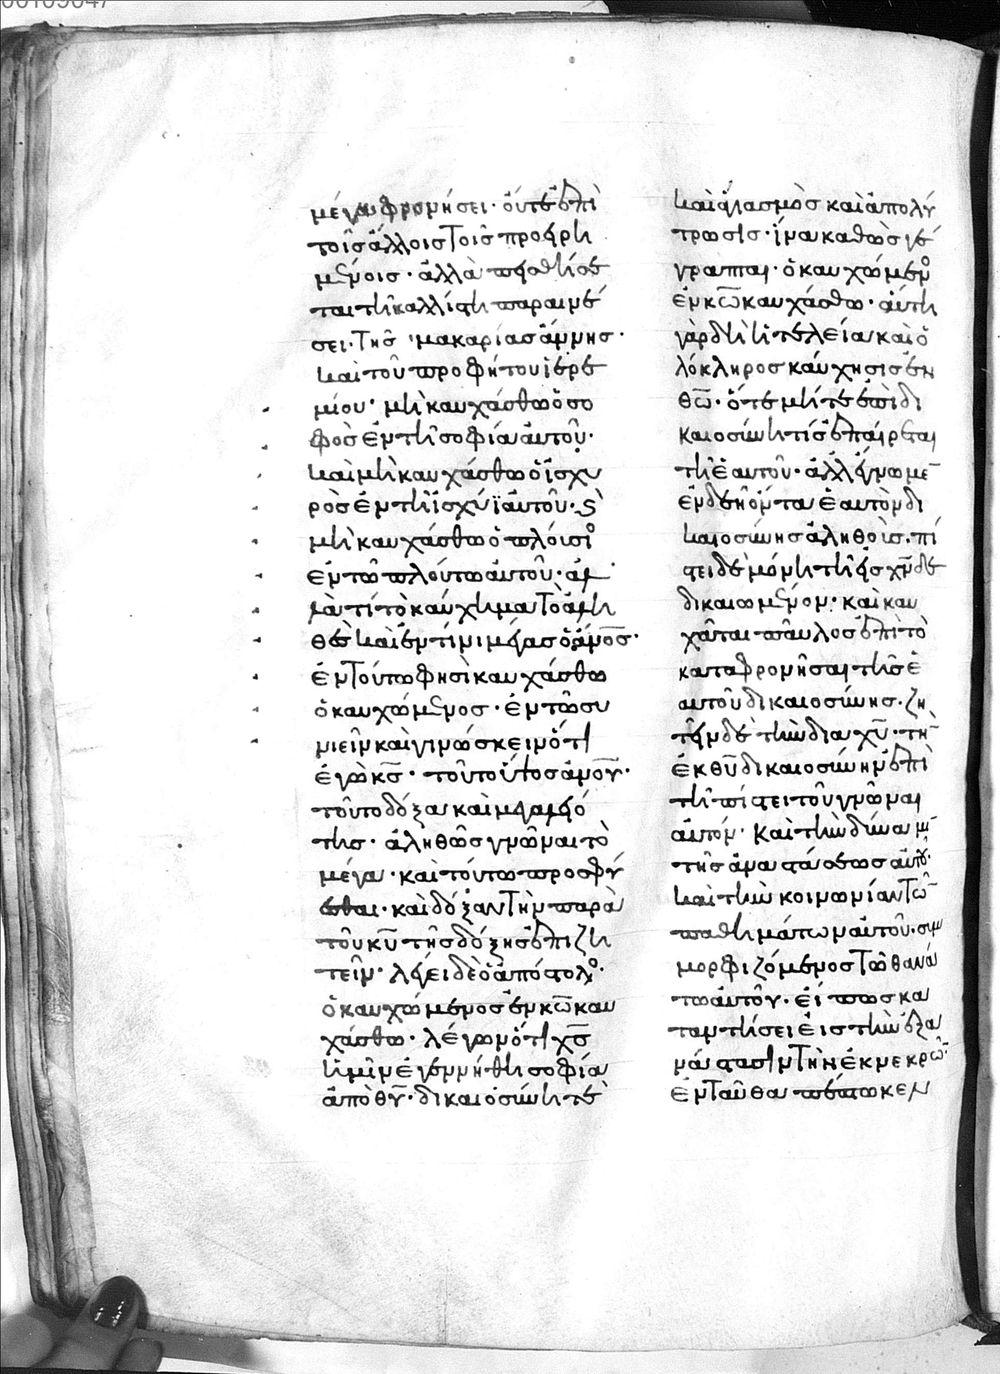 μέγα φρονήσει· οὔτε ἐπὶ
τοῖς ἄλλοις τοῖς προειρη
μένοις· ἀλλὰ πείθεσθέ
ται τῆ καλλίστη παραινέ
σει· τῆς μακαρίας ἄννης·
καὶ τοῦ προφήτου ἱερε
μίου· μὴ καυχάσθω ὁ σο
φὸς ἐν τῆ σοφία αὐτοῦ·
καὶ μὴ καυχάσθω ὁ ἰσχυ
ρὸς ἐν τῆ ἰσχύϊ αὐτοῦ· ϗ
μὴ καυχάσθω ὁ πλούσιο
ἐν τῶ πλούτω αὐτοῦ· ἀλ
λὰ τί τὸ καύχημα τὸ ἀλη
θὲς καὶ ἐν τίνι μέγας ὁ ἄνος·
ἐν τούτω φησὶ καυχάσθω
ὁ καυχώμενος· ἐν τῶ συ
νιεῖν καὶ γινώσκειν ὅτι
ἐγὼ κς· τοῦτο ὕψος ἀνου·
τοῦτο δόξα καὶ μεγαλειό
της· ἀληθῶς γνῶναι τὸ
μέγα· καὶ τούτω προσφύ
εσθαι· καὶ δόξαν τὴν παρὰ
τοῦ κυ τῆς δόξης ἐπιζη
τεῖν· λέγει δὲ ὁ ἀπόστολο·
ὁ καυχώμενος ἐν κω καυ
χάσθω· λέγων ὅτι χς
ἡμῖν ἐγεννήθη σοφία
ἀπὸ θυ· δικαιοσύνη τὲ
καὶ ἁγιασμὸς καὶ ἀπολύ
τρωσις· ἵνα καθὼς γέ
γραπται· ὁ καυχώμενο
ἐν κω καυχάσθω· αὕτη
γὰρ δὴ ἡ τελεία καὶ ὁ
λόκληρος καύχησις ἐν
θω· ὅτε μήτε ἐπὶ δι
καιοσύνη τίς ἐπαίρεται
τῆ ἑαυτοῦ· ἀλλ᾽ ἔγνω με
ἐνδεῆ ὄντα ἑαυτὸν δι
καιοσύνης ἀληθοῦς· πί
στει δὲ μόνη τῆ εἰς χν δε
δικαιωμένον· καὶ καυ
χᾶται παῦλος ἐπὶ τὸ
καταφρονῆσαι τῆς ἑ
αυτοῦ δικαιοσύνης· ζη
τεῖν δὲ τὴν δια χυ· τὴ
ἐκ θυ δικαιοσύνην ἐπὶ
τῆ πίστει τοῦ γνῶναι
αὐτόν· καὶ τὴν δύναμι
τῆς ἀναστάσεως αὐτου·
καὶ τὴν κοινωνίαν τῶ
παθημάτων αὐτοῦ· συμ
μορφιζόμενος τῶ θανά
τω αὐτοῦ· εἴ πως κα
ταντήσει εἰς τὴν ἐξα
νάστασιν τὴν ἐκ νεκρῶ·
ἐνταῦθα πέπτωκεν